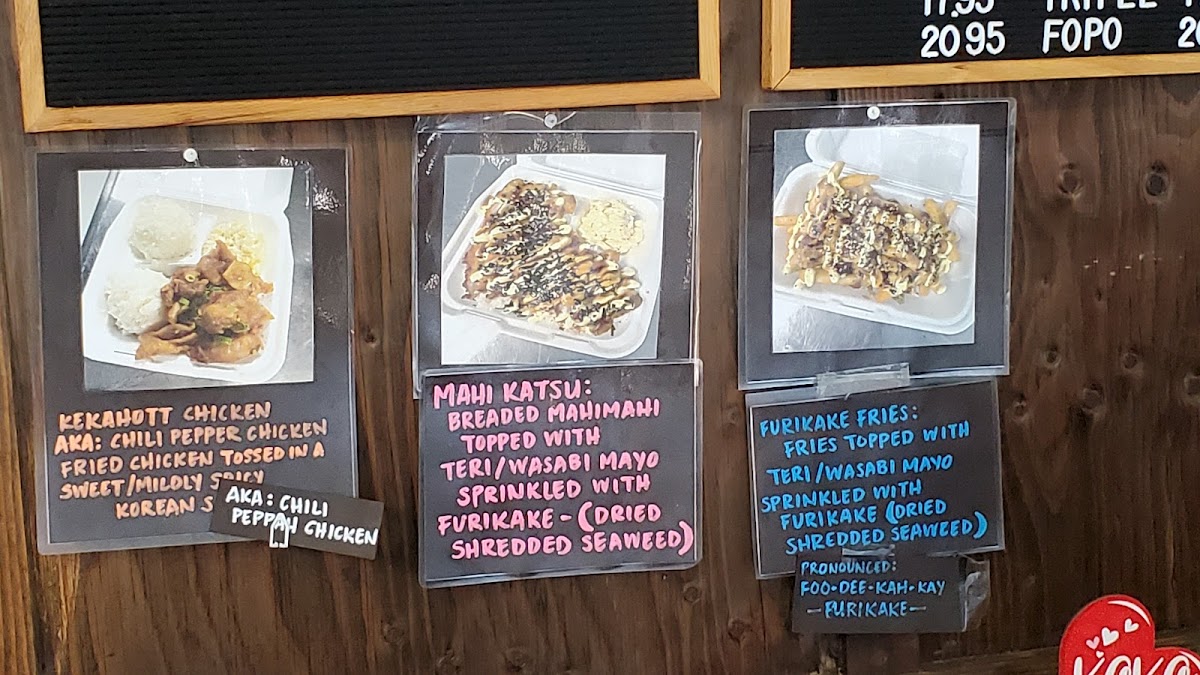 20 95 FOPO
KEKAHOTT CHICKEN
AKA: CHILI PEPPER CHICKEN
FRIED CHICKEN TOSSED IN A
SWEET/MILDLY SPICY
KOREAN
AKA: CHILI
PEPPAH CHICKEN
MAHI KATSU:
BREADED MAHIMAHI
TOPPED WITH
TERI/WASABI MAYO
SPRINKLED WITH
FURIKAKE - (DRIED
SHREDDED SEAWEED)
FURIKAKE FRIES:
FRIES TOPPED WITH
TERI/WASABI MAYO
SPRINKLED WITH
FURIKAKE (DRIED
SHREDDED SEAWEED)
PRONOUNCED:
FOO-DEE-KAH-KAY
- FURIKAKE -